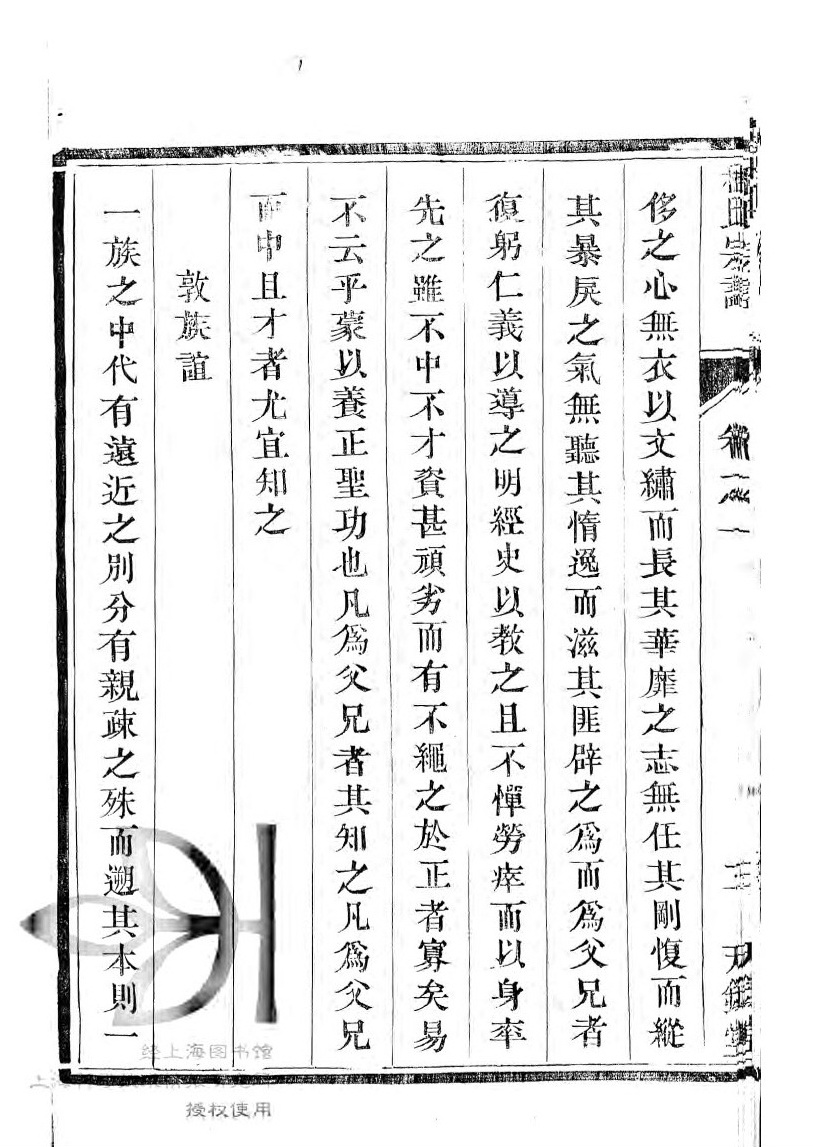 侈之心無衣以文繡而長其華靡之志無任其剛愎而縱
其暴戾之氣無聽其惰逸而滋其匪辟之爲而爲父兄者
復躬仁義以導之明經史以教之且不憚勞瘁而以身率
先之雖不中不才資甚頑劣而有不繩之於正者寡矣易
不云乎蒙以養正聖功也凡爲父兄者其知之凡爲父兄
而中且才者尤宜知之
敦族誼
一族之中代有遠近之別分有親疎之殊而遡其本則一
经上海图书馆
授权使用